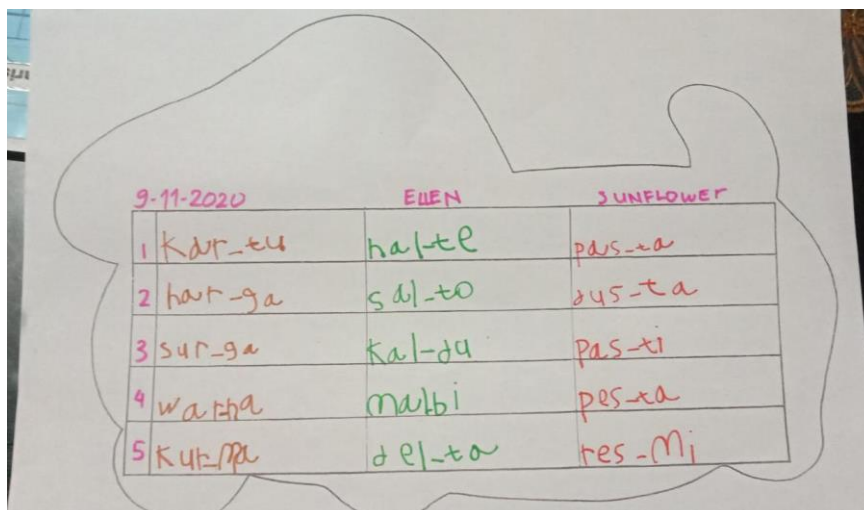 9-11-2020 ELLEN SUNFLOWER
1 kar-tu hal-te pas-ta
2 har-ga sal-to dus-ta
3 sur-ga kal-du pas-ti
4 war-na mal-bi pes-ta
5 kur-ma del-ta res-mi